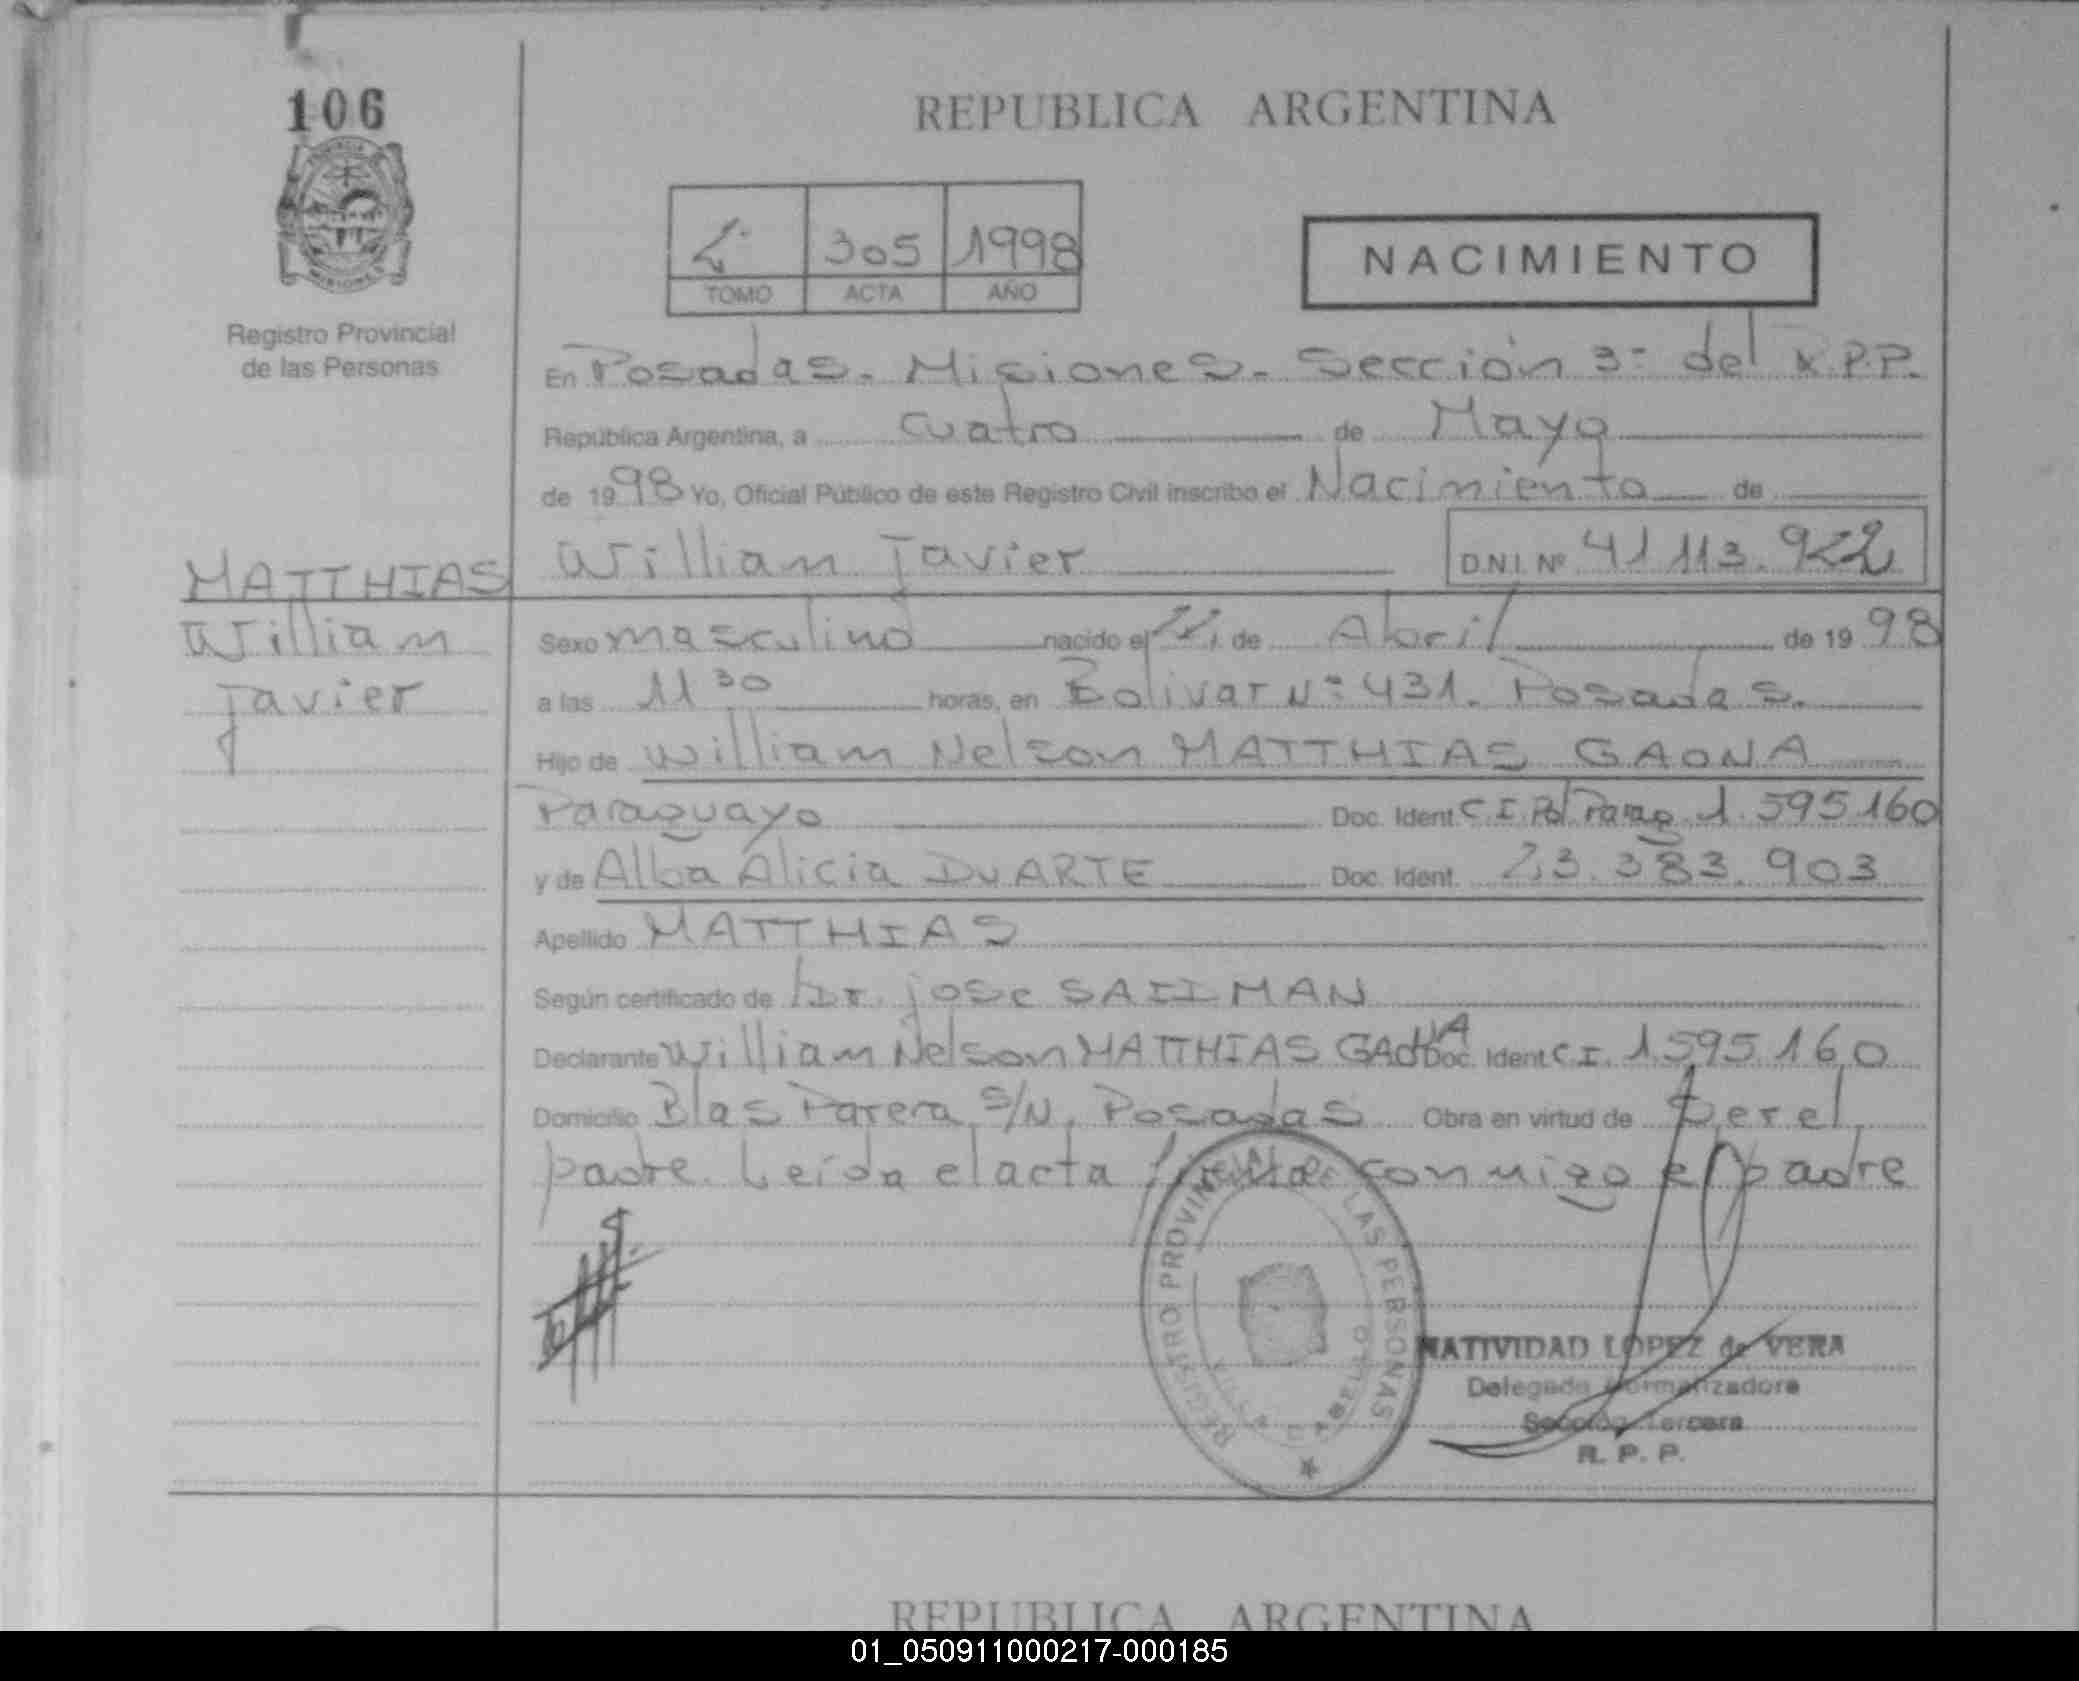 106
REPUBLICA ARGENTINA
305 1998
TOMO ACTA AÑO
NACIMIENTO
Registro Provincial
de las Personas
En Posadas. Misiones. Sección 3ª del R.P.P.
República Argentina, a cuatro de Mayo
de 1998 Yo, Oficial Público de este Registro Civil inscribo el Nacimiento de
MATTHIAS William Javier D.N.I. Nº 41 113.922
William Sexo masculino nacido el 22 de Abril de 1998
Javier a las 11 30 horas, en Bolivar Nº 431. Posadas.
Hijo de William Nelson MATTHIAS GAONA
Paraguayo Doc. Ident. C I. Pol Parag 1.595160
y de Alba Alicia DUARTE Doc. Ident. 23.383.903
Apellido MATTHIAS
Según certificado de Dr. jose
Declarante William Nelson MATTHIAS GAONA Doc. Ident C I. 1.595.160
Domicilio Blas Parera S/N. Posadas Obra en virtud de Ser el
padre. Leída el acta firma conmigo el padre
REGISTRO PROVINCIAL DE LAS PERSONAS
NATIVIDAD LOPEZ de VERA
Delegada Normalizadora
Sección Tercera
R. P. P.
REPUBLICA ARGENTINA
01_050911000217-000185